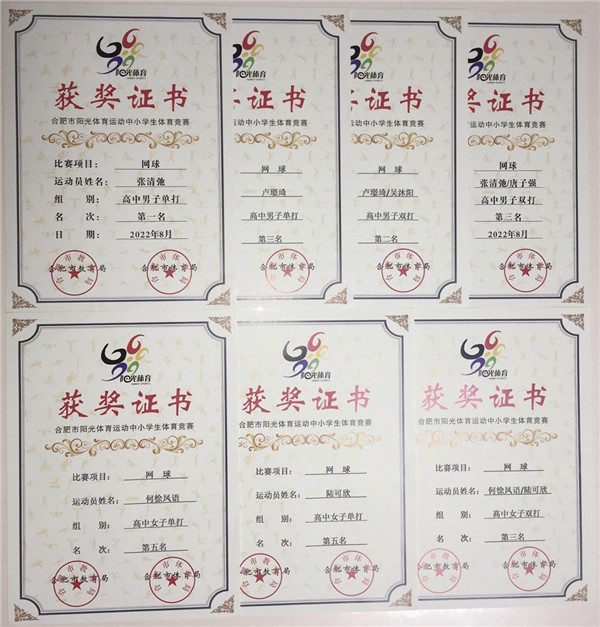 阳光体育
获奖证书
合肥市阳光体育运动中小学生体育竞赛
比赛项目: 网球
运动员姓名: 张清弛
组 别: 高中男子单打
名 次: 第一名
日 期: 2022年8月
合肥市教育局 合肥市体育局
阳光体育
奖证书
市阳光体育运动中小学生体育竞赛
网 球
卢璎琦
高中男子单打
第三名
合肥市体育局
阳光体育
奖证书
市阳光体育运动中小学生体育竞赛
网 球
卢璎琦/吴沐阳
高中男子双打
第二名
合肥市体育局
阳光体育
奖证书
阳光体育运动中小学生体育竞赛
网球
张清弛/唐子强
高中男子双打
第三名
2022年8月
合肥市体育局
阳光体育
获奖证书
合肥市阳光体育运动中小学生体育竞赛
比赛项目: 网 球
运动员姓名: 何徐风语
组 别: 高中女子单打
名 次: 第五名
合肥市教育局 合肥市体育局
阳光体育
获奖证书
合肥市阳光体育运动中小学生体育竞赛
比赛项目: 网 球
运动员姓名: 陆可欣
组 别: 高中女子单打
名 次: 第五名
合肥市教育局 合肥市体育局
阳光体育
获奖证书
合肥市阳光体育运动中小学生体育竞赛
比赛项目: 网 球
运动员姓名: 何徐风语/陆可欣
组 别: 高中女子双打
名 次: 第三名
合肥市教育局 合肥市体育局